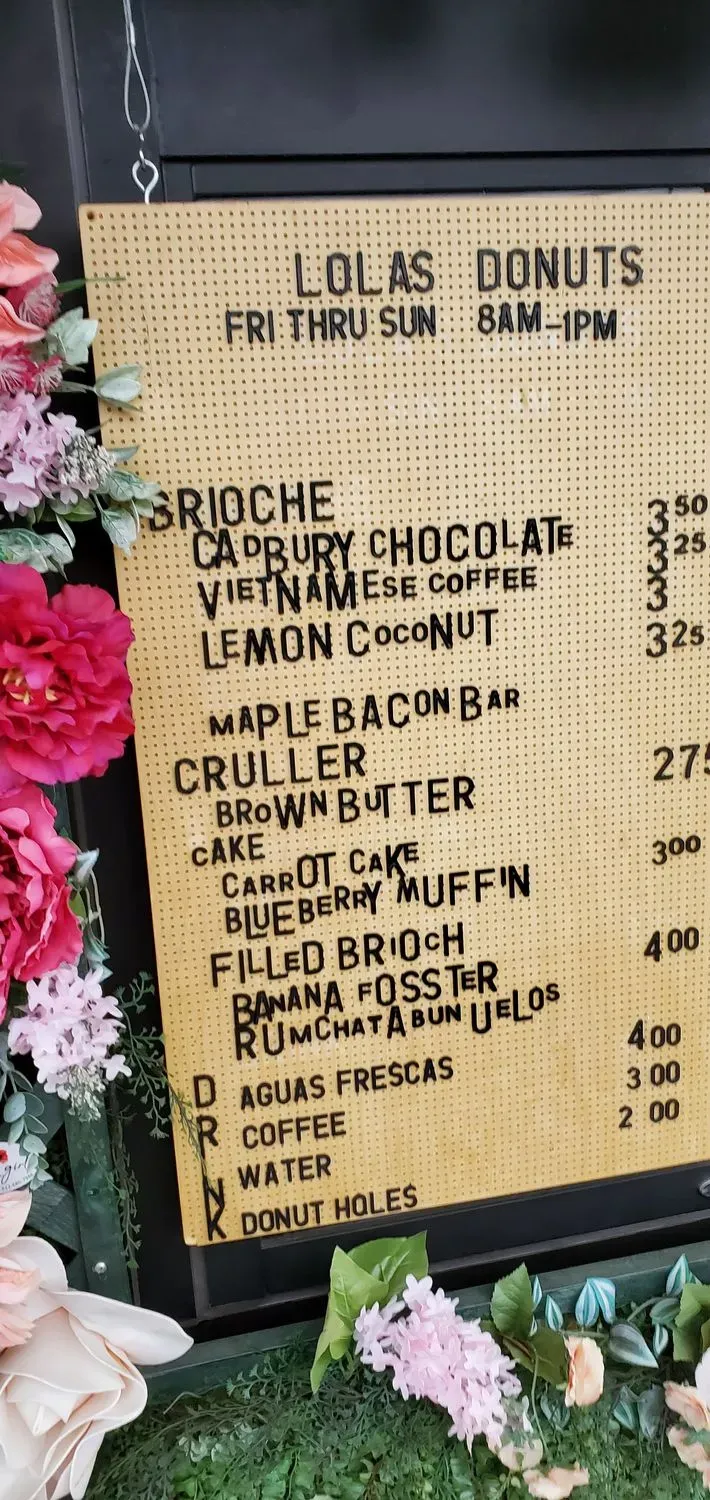 LOLAS DONUTS
FRI THRU SUN 8AM-1PM
BRIOCHE 3 50
CADBURY CHOCOLATE 3 25
VIETNAMESE COFFEE 3
LEMON COCONUT 3 25
MAPLE BACON BAR
CRULLER 275
BROWN BUTTER
CAKE 3 00
CARROT CAKE
BLUEBERRY MUFFIN
FILLED BRIOCH 4 00
BANANA FOSSTER
RUMCHATA BUNUELOS
D AGUAS FRESCAS 4 00
R COFFEE 3 00
N WATER 2 00
K DONUT HOLES